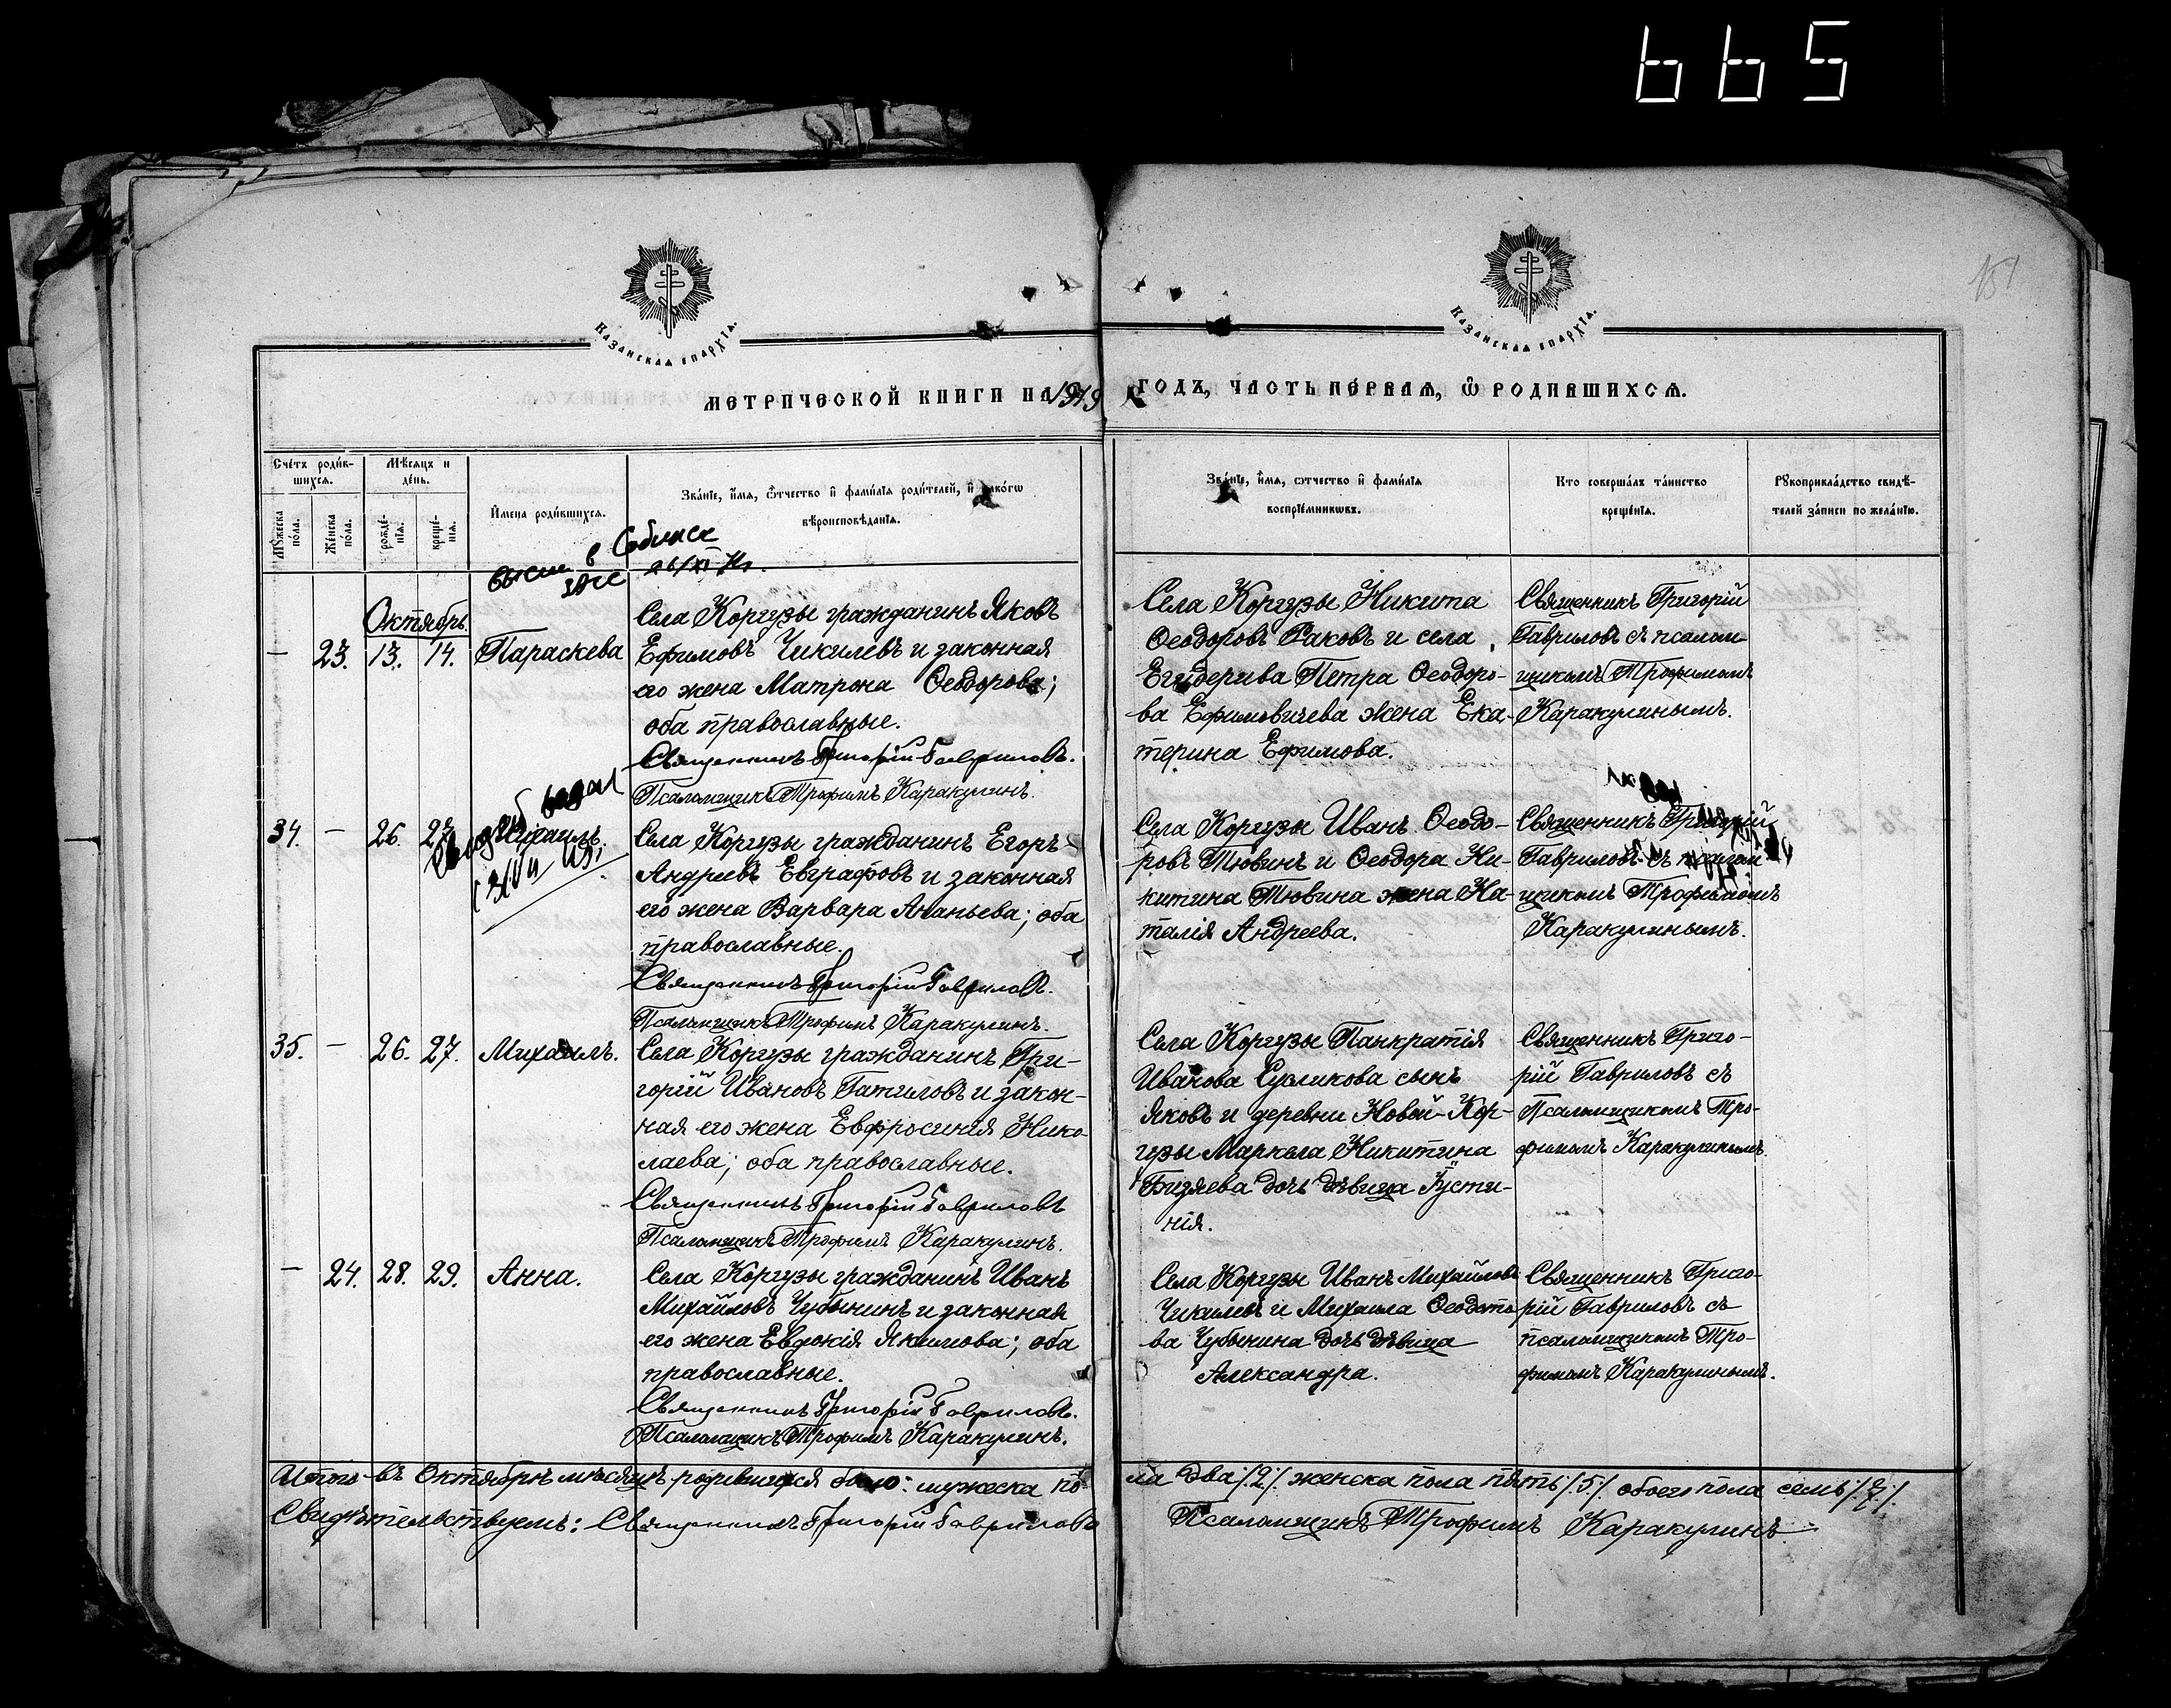 665
151
КАЗАНСКАѦ ЕПАРХІѦ.
КАЗАНСКАѦ ЕПАРХІѦ.
МЕТРИЧЕСКОЙ КНИГИ НА 1919
ГОДЪ, ЧАСТЬ ПЕ́РВАѦ, Ѽ РОДИВШИХСѦ.
Сче́тъ роди́в-
шихсѧ.
Мꙋ́жеска по́ла.
Же́нска по́ла.
Мѣ́сѧцъ и
де́нь.
рожде́-
нїѧ.
креще́-
нїѧ.
Имена роди́вшихсѧ.
Зва́нїе, и́мѧ, ѻ҆́тчество и҆ фами́лїѧ роди́телей, и҆ како́гѡ
вѣроисповѣ́данїѧ.
Зва́нїе, и́мѧ, ѻтчество и҆ фами́лїѧ
воспрїе́мникѡвъ.
Кто соверша́лъ та́инство
креще́нїѧ.
Рꙋкоприкла́дство свидѣ́-
телей за́писи по жела́нїю.
в
Октябрь.
— 23. 13. 14. Параскева
Села Коргузы гражданинъ Яковъ
Ефимовъ Чикилевъ и законная
его жена Матрона Ѳеодорова;
оба православные.
Священникъ Григорій Гавриловъ.
Псаломщикъ Трофимъ Каракулинъ.
Села Коргузы Никита
Ѳеодоровъ Раковъ и села
Егидерива Петра Ѳеодоро-
ва Ефимовичева жена Ека-
терина Ефимова.
Священникъ Григорій
Гавриловъ съ псалом-
щикомъ Трофимомъ
Каракулинымъ.
34. — 26. 27. Михаилъ.
Села Коргузы гражданинъ Егоръ
Андреевъ Евграфовъ и законная
его жена Варвара Ананьева; оба
православные.
Священникъ Григорій Гавриловъ.
Псаломщикъ Трофимъ Каракулинъ.
Села Коргузы Иванъ Ѳеодо-
ровъ Тювинъ и Ѳеодора Ни-
китина Тювина жена На-
талія Андреева.
Священникъ Григорій
Гавриловъ съ псалом-
щикомъ Трофимомъ
Каракулинымъ.
35. — 26. 27. Михаилъ.
Села Коргузы гражданинъ Гри-
горій Ивановъ Гатиловъ и закон-
ная его жена Евфросинія Нико-
лаева; оба православные.
Священникъ Григорій Гавриловъ
Псаломщикъ Трофимъ Каракулинъ.
Села Коргузы Панкратія
Иванова Сусликова сынъ
Яковъ и деревни Новой-Кор-
гузы Маркела Никитина
Бизяева дочь дѣвица Іусти-
нія.
Священникъ Григо-
рій Гавриловъ съ
Псаломщикомъ Тро-
фимомъ Каракулинымъ.
— 24. 28. 29. Анна.
Села Коргузы гражданинъ Иванъ
Михайловъ Чубынинъ и законная
его жена Евдокія Якимова; оба
православные.
Священникъ Григорій Гавриловъ.
Псаломщикъ Трофимъ Каракулинъ.
Села Коргузы Иванъ Михайловъ
Чикилевъ и Михаила Ѳеодото-
ва Чубынина дочь дѣвица
Александра.
Священникъ Григо-
рій Гавриловъ съ
псаломщикомъ Тро-
фимомъ Каракулинымъ.
Итого въ Октябрѣ мѣсяцѣ родившихся было: мужеска по-
ла два /.2./. женска пола пять /.5./. обоего пола семь /.7./.
Свидѣтельствуемъ: Священникъ Григорій Гавриловъ
Псаломщикъ Трофимъ Каракулинъ.